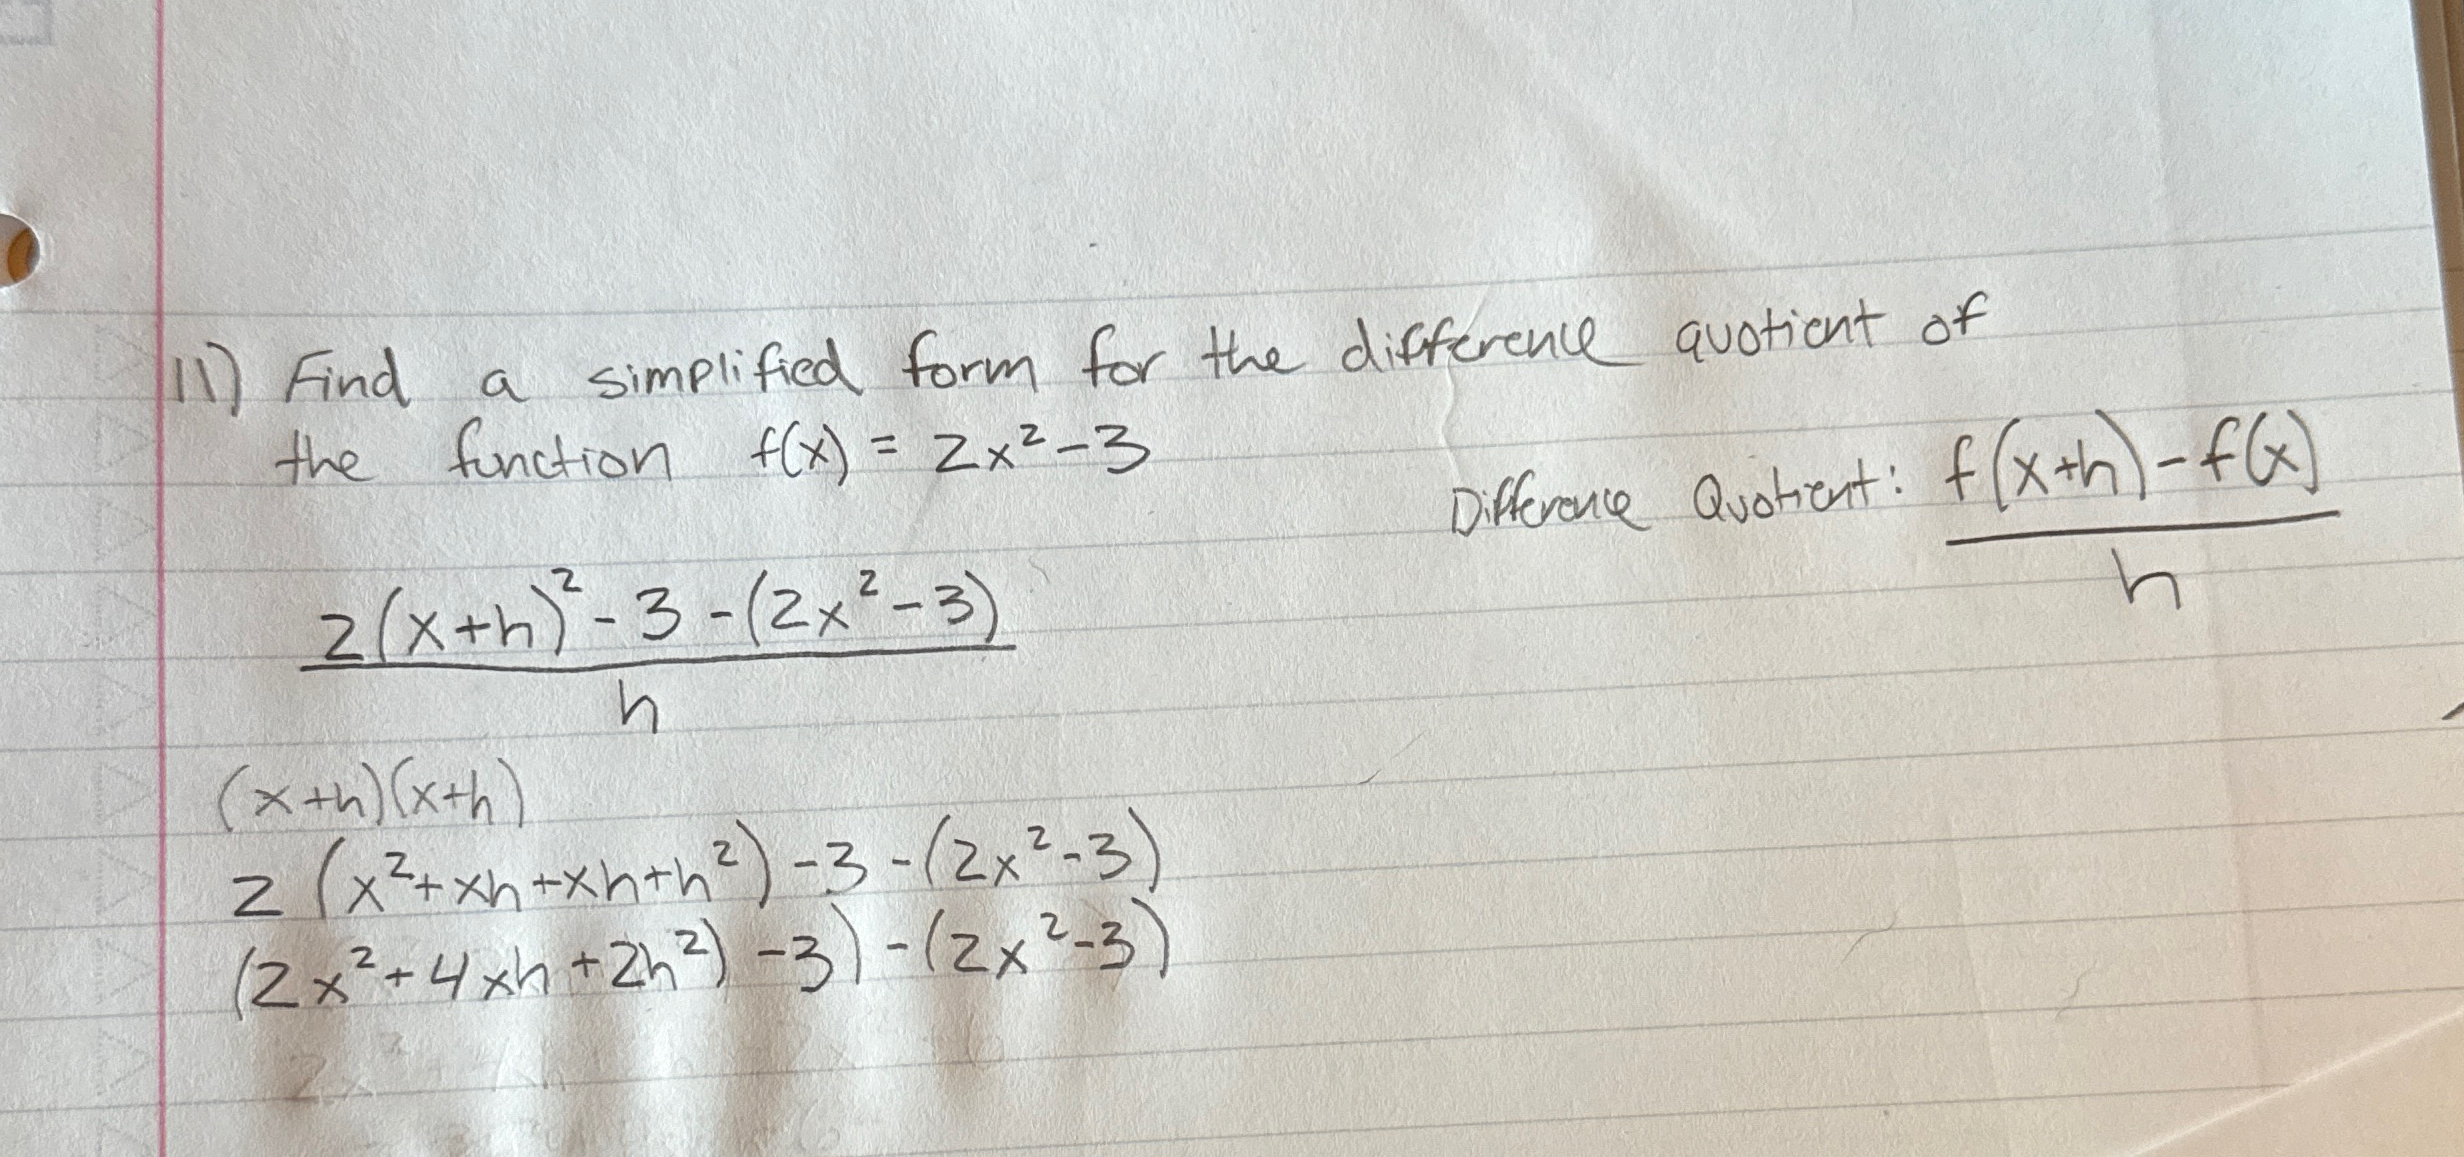 11) Find a simplified form for the difference quotient of
the function f(x) = 2x² - 3
Difference Quotient: f(x+h) - f(x)
h
2(x+h)² - 3 - (2x² - 3)
h
(x+h)(x+h)
2 (x² + xh + xh + h²) - 3 - (2x² - 3)
(2x² + 4xh + 2h²) - 3) - (2x² - 3)